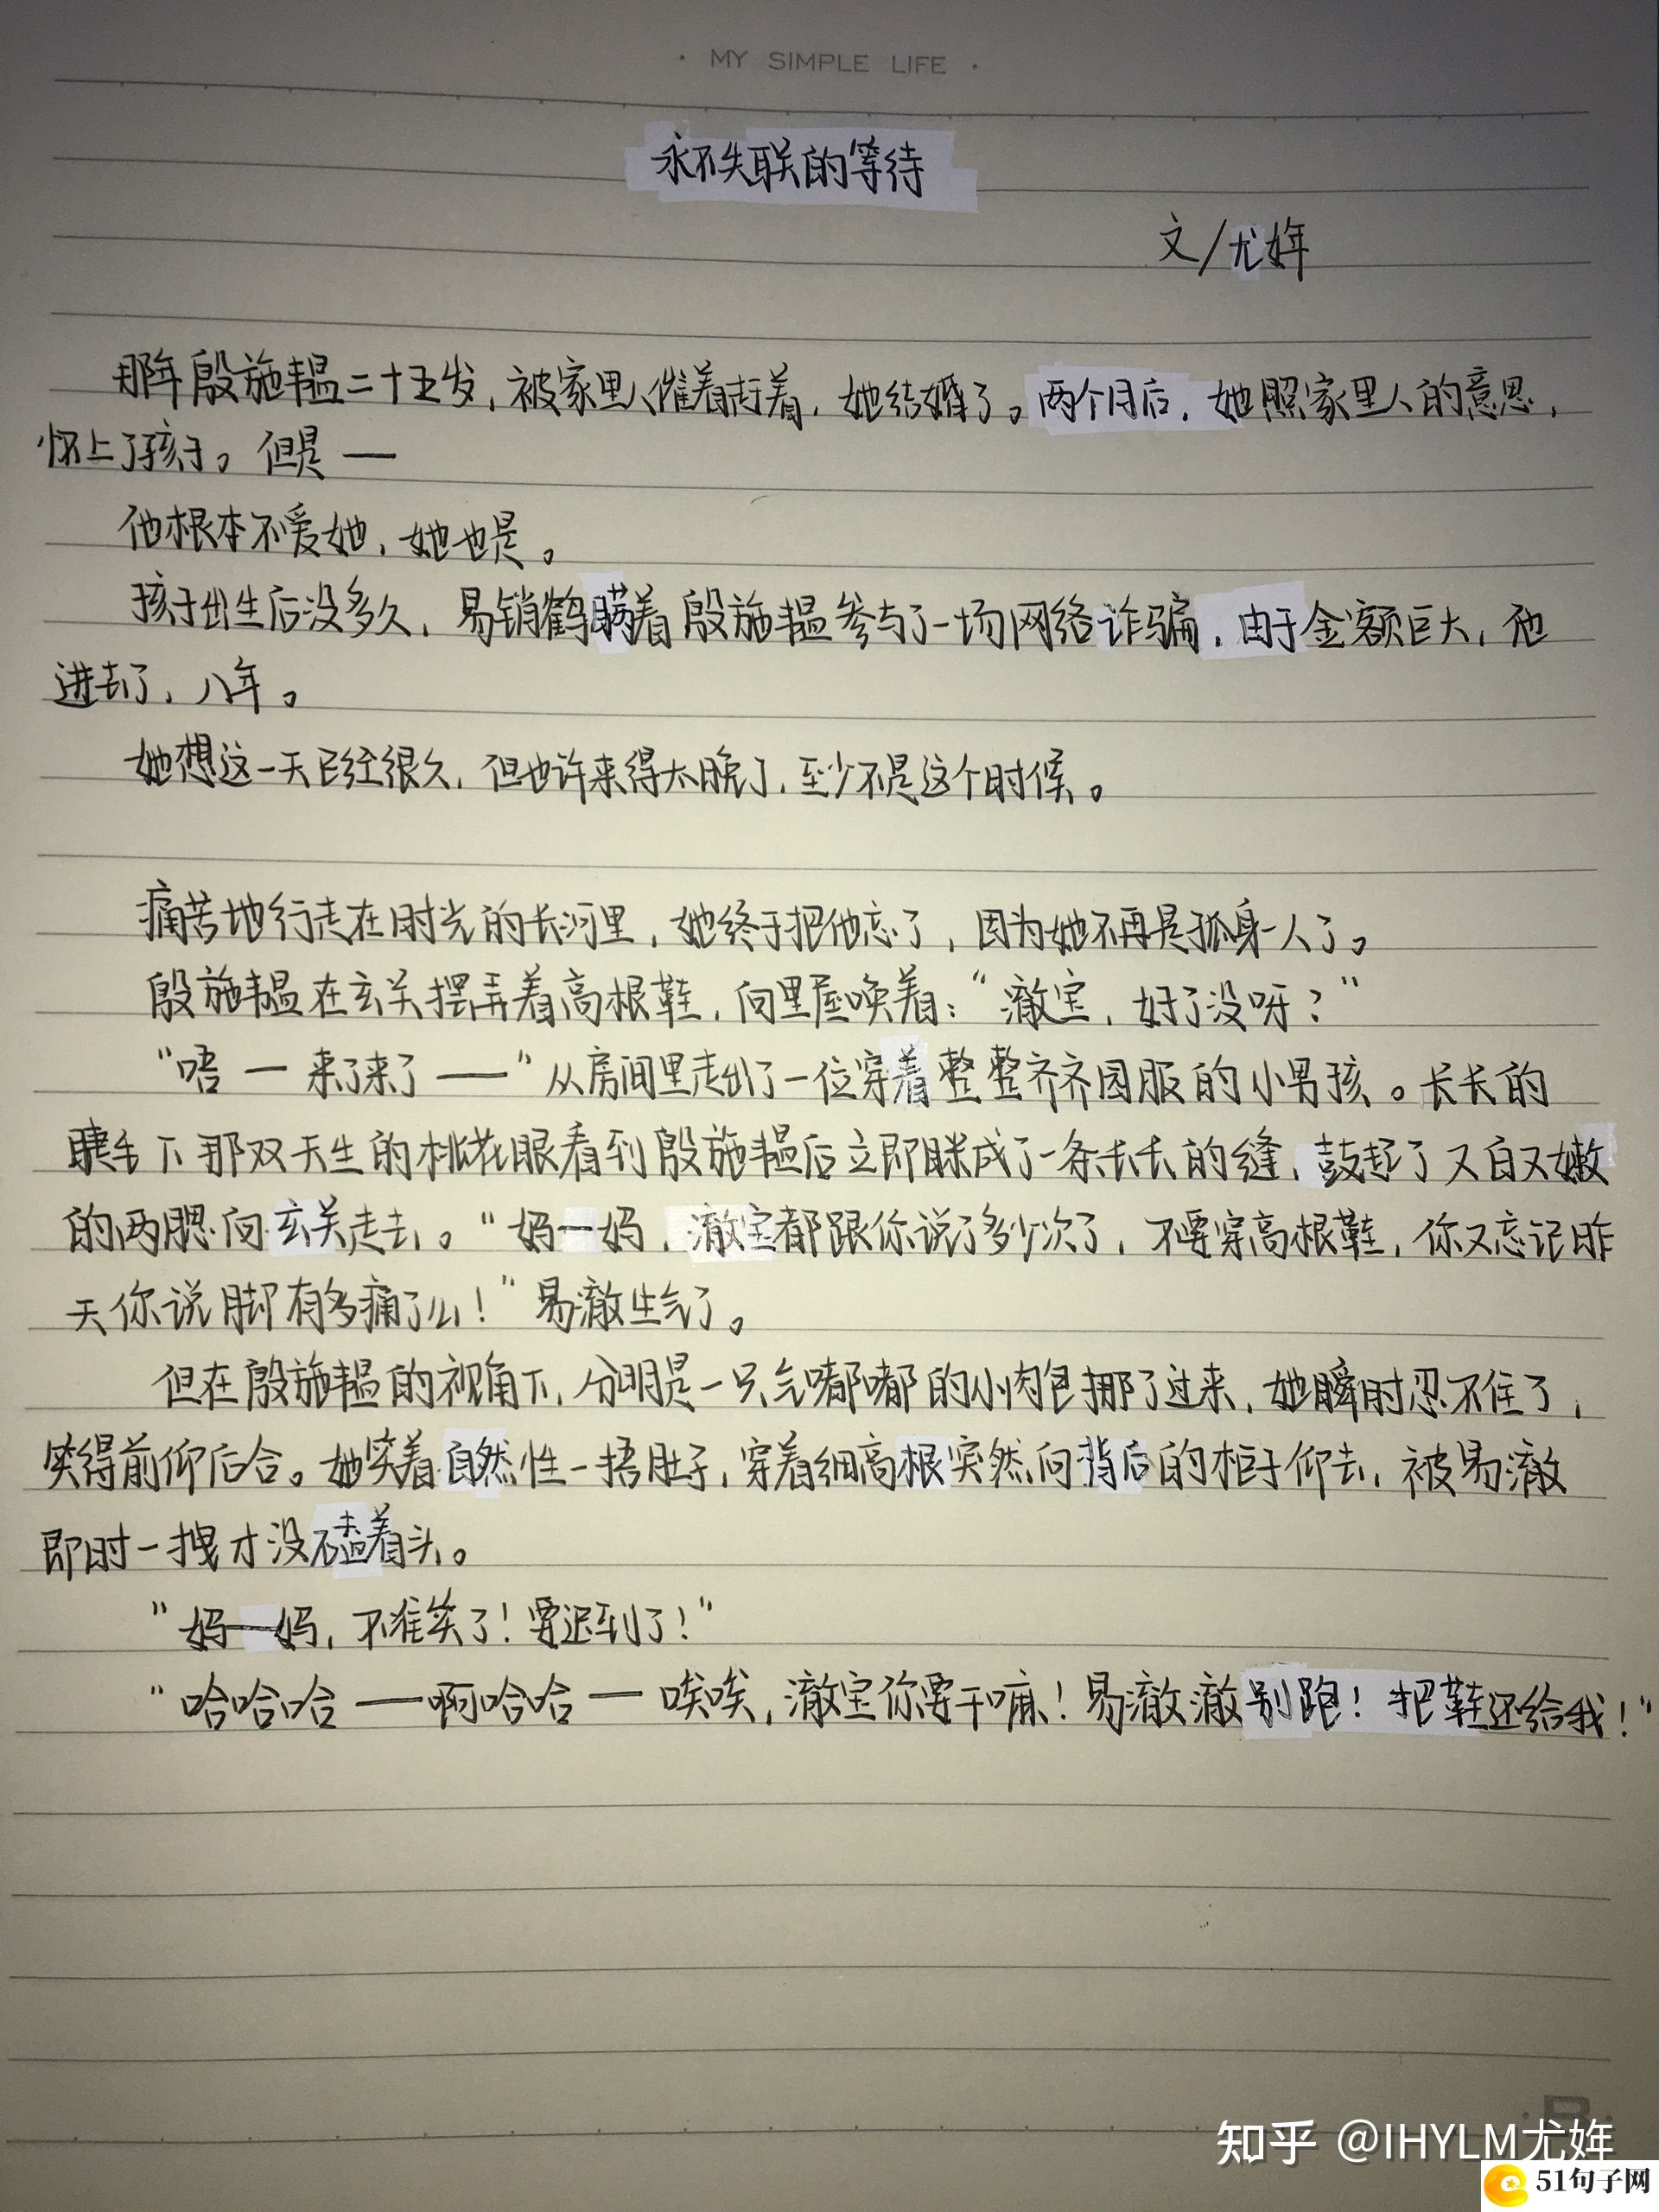 · MY SIMPLE LIFE ·
永不失联的等待
文/尤姩
那年殷施韫二十五岁，被家里人催着赶着，她结婚了。两个月后，她照家里人的意思，
怀上了孩子。但是——
他根本不爱她，她也是。
孩子出生后没多久，易销鹤瞒着殷施韫参与了一场网络诈骗，由于金额巨大，他
进去了，八年。
她想这一天已经很久，但也许来得太晚了，至少不是这个时候。
痛苦地行走在时光的长河里，她终于把他忘了，因为她不再是孤身一人了。
殷施韫在玄关摆弄着高根鞋，向里屋唤着：“澈宝，好了没呀？”
“唔—来了来了——”从房间里走出了一位穿着整整齐齐园服的小男孩。长长的
睫毛下那双天生的桃花眼看到殷施韫后立即眯成了一条长长的缝，鼓起了又白又嫩
的两腮向玄关走去。“妈—妈，澈宝都跟你说了多少次了，不要穿高根鞋，你又忘记昨
天你说脚有多痛了么！”易澈生气了。
但在殷施韫的视角下，分明是一只气嘟嘟的小肉包挪了过来，她瞬时忍不住了，
笑得前仰后合。她笑着自然性一捂肚子，穿着细高根突然向背后的柜子仰去，被易澈
即时一拽才没磕着头。
“妈—妈，不准笑了！要迟到了！”
“哈哈哈——啊哈哈—唉唉，澈宝你要干嘛！易澈澈别跑！把鞋还给我！”
知乎 @IHYLM尤姩
51句子网